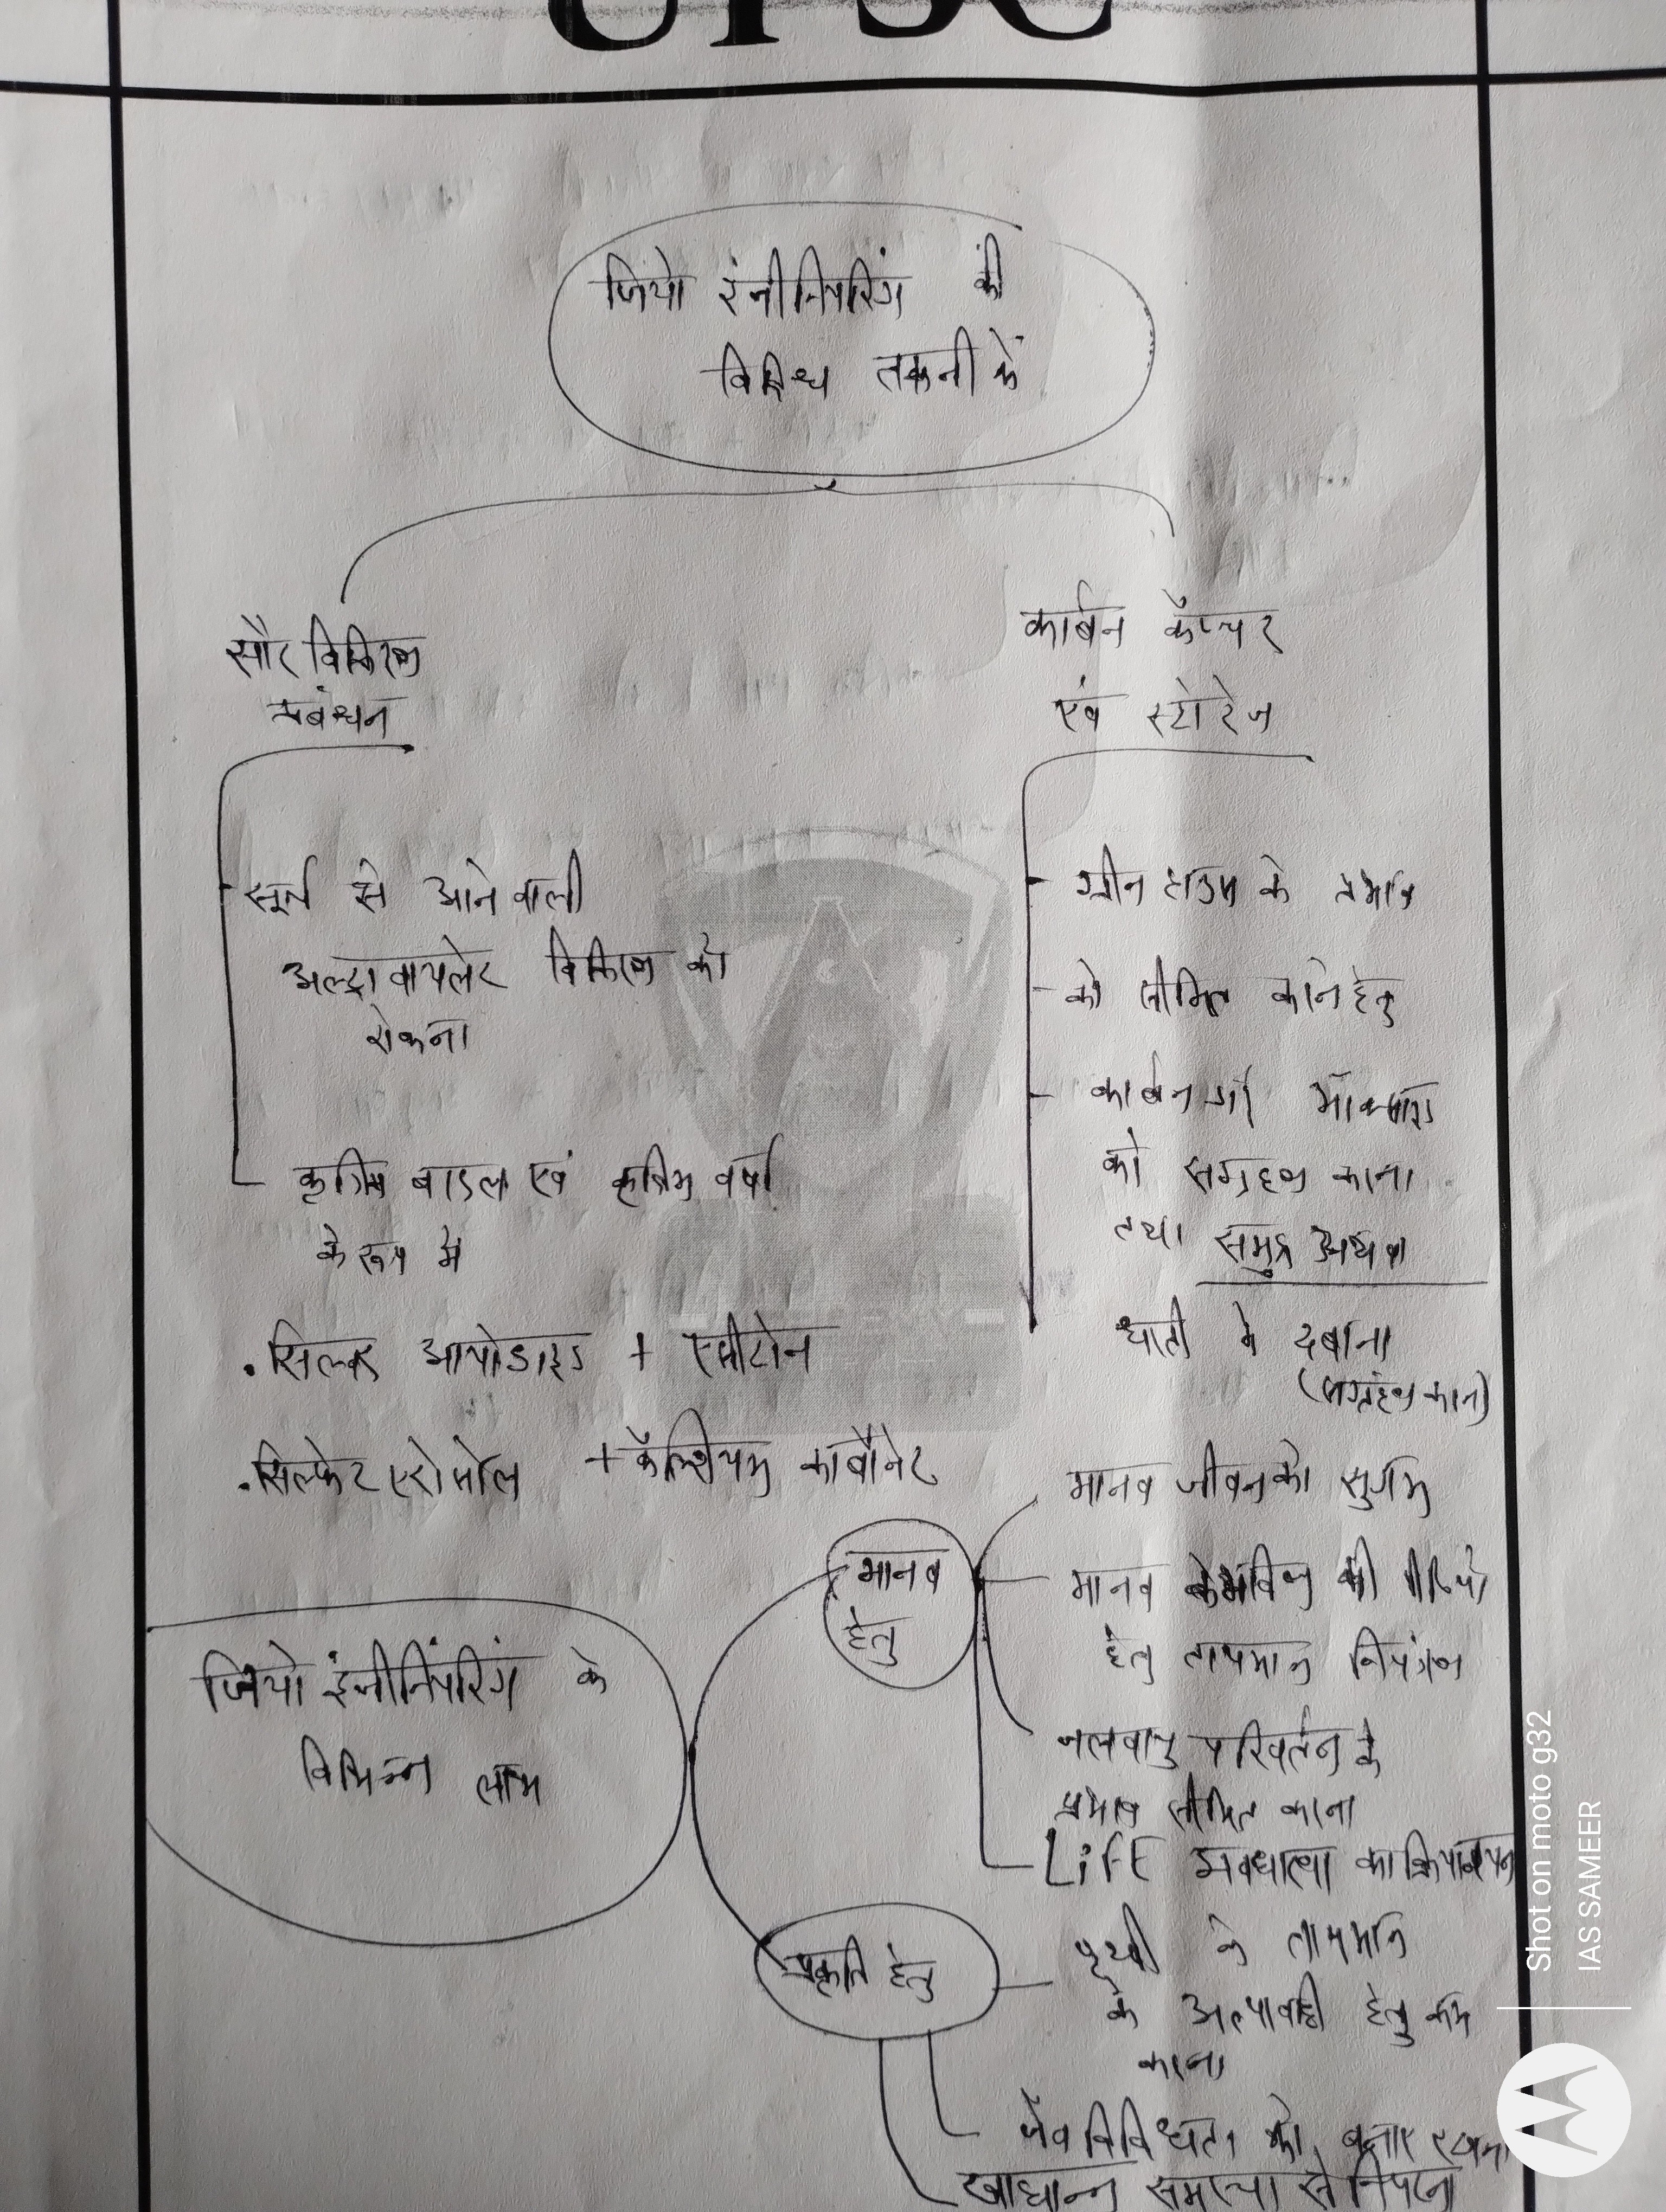 UPSC
जियो इंजीनियरिंग की
विविध तकनीकें
सौर विकिरण
प्रबंधन
सूर्य से आने वाली
अल्ट्रावायलेट विकिरण को
रोकना
कृत्रिम बादल एवं कृत्रिम वर्षा
के रूप में
.सिल्वर आयोडाइड +
.सल्फेट एरोसोल + कैल्शियम कार्बोनेट
कार्बन कैप्चर
एवं स्टोरेज
ग्रीन हाउस के प्रभाव
को सीमित करने हेतु
कार्बन डाई ऑक्साइड
को संग्रहण करना
तथा समुद्र अथवा
धरती में दबाना
(संग्रहण करना)
जियो इंजीनियरिंग के
विभिन्न लाभ
मानव
हेतु
मानव जीवन को सुगम
मानव के भविष्य की पीढ़ियों
हेतु तापमान नियंत्रण
जलवायु परिवर्तन के
प्रभाव सीमित करना
LiFE अवधारणा का क्रियान्वयन
प्रकृति हेतु
पृथ्वी के तापमान
के हेतु कम
करना
जैव विविधता को बनाए रखना
खाद्यान्न समस्या से निपटना
Shot on moto g32
IAS SAMEER